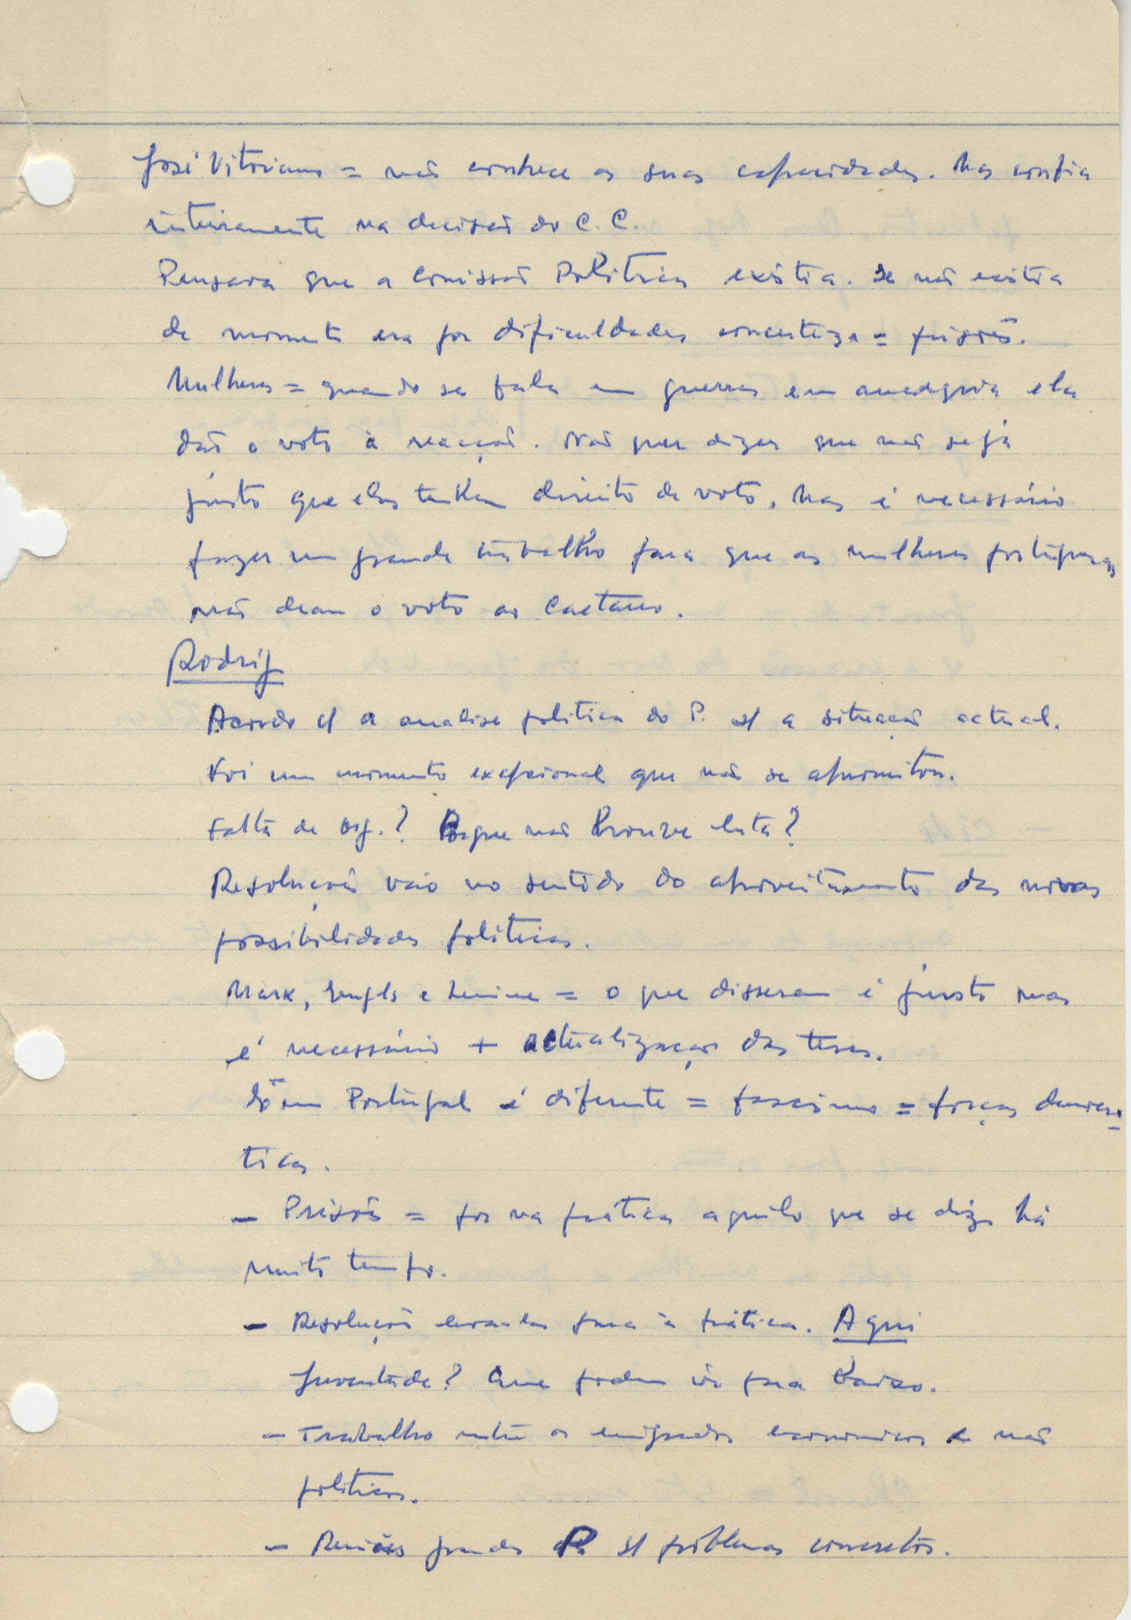 José Vitoriano = não conhece as suas capacidades. Mas confia
inteiramente na decisão do C. C.
Pensava que a Comissão Politica existia. Se não existia
de momento era por dificuldades concerteza = prisões.
Mulheres = quando se fala em guerras em  elas
dão o voto à reacção. Não quer dizer que não seja
justo que elas tenham direito de voto. Mas é necessário
fazer um grande trabalho para que as mulheres portuguesas
não deam o voto ao Caetano.
Rodrig
Acordo c/ a analise politica do P. s/ a situação actual.
Foi um momento excepcional que não se aproveitou.
Falta de org.? Porque não houve luta?
Resoluções vão no sentido do aproveitamento das novas
possibilidades politicas.
Marx, Engels e Lenine = o que disseram é justo mas
é necessário + actualização das teses.
Só em Portugal é diferente = fascismo = forças democra-
ticas.
- Prisões = por na prática aquilo que se diz há
muito tempo.
- Resoluções levadas para a prática. Aqui
Juventude? Que podem ir para baixo.
- Trabalho entre os emigrados economicos e não
politicos.
- Reuniões grandes s/ problemas concretos.